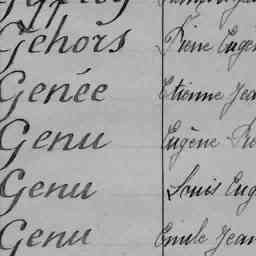 Gehors Pierre Eugè
Genée Etienne Jea
Genu Eugène
Genu Louis Eug
Genu Emile Jean